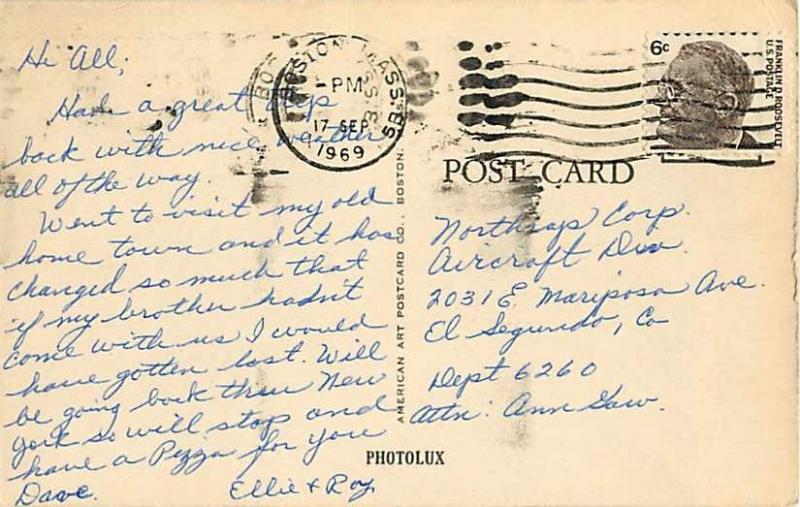 Hi All;
Had a great trip
back with nice weather
all of the way.
Went to visit my old
home town and it has
changed so much that
if my brother hadn't
come with us I would
have gotten lost. Will
be going back thru New
York so will stop and
have a Pizza for you
Dave. Ellie & Roy
BOSTON, MASS.
PM
17 SEP
1969
6c
FRANKLIN D. ROOSEVELT
U.S. POSTAGE
POST CARD
AMERICAN ART POSTCARD CO., BOSTON,
Northrop Corp.
Aircraft Div.
2031 E. Mariposa Ave.
El Segundo, Ca
Dept 6260
Attn: Ann
PHOTOLUX